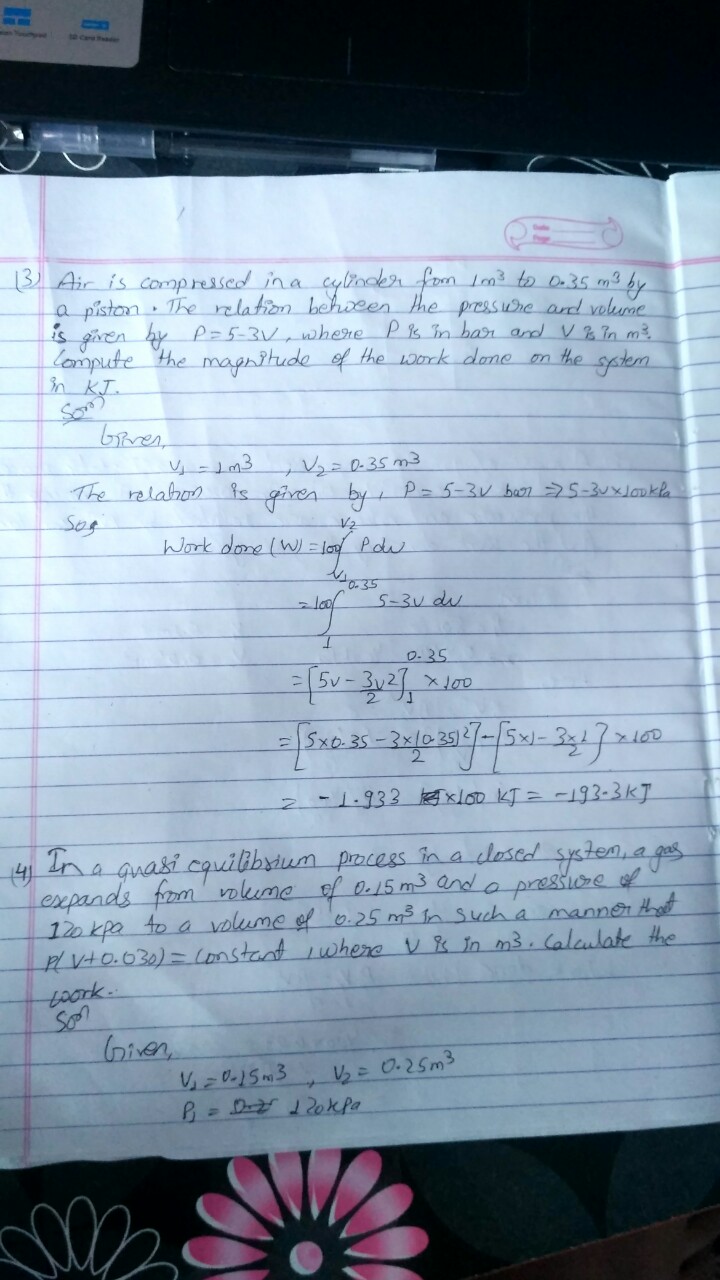 SD Card Reader
Date
Page
(3) Air is compressed in a cylinder from 1m³ to 0.35 m³ by
a piston. The relation between the pressure and volume
is given by P=5-3V, where P is in bar and V is in m³.
Compute the magnitude of the work done on the system
in KJ.
Soln
Given,
V₁ = 1m³ , V₂ = 0.35 m³
The relation is given by, P = 5-3V bar ⇒ 5-3v×100kPa
So,
Work done (W) = 100∫ᵥ₁ᵛ² P dv
= 100∫₁⁰·³⁵ 5-3v dv
= [5v - 3v2/2]₁⁰·³⁵ × 100
= [5×0.35 - 3×(0.35)²/2] - [5×1 - 3×1/2] × 100
= -1.933 ×100 KJ = -193.3KJ
(4) In a quasi equilibrium process in a closed system, a gas
expands from volume of 0.15m³ and a pressure of
120 kpa to a volume of 0.25 m³ in such a manner that
P(V+0.030) = constant, where V is in m3. Calculate the
work.
Soln
Given,
V₁ = 0.15m³ , V₂ = 0.25m³
P₁ = 120kPa